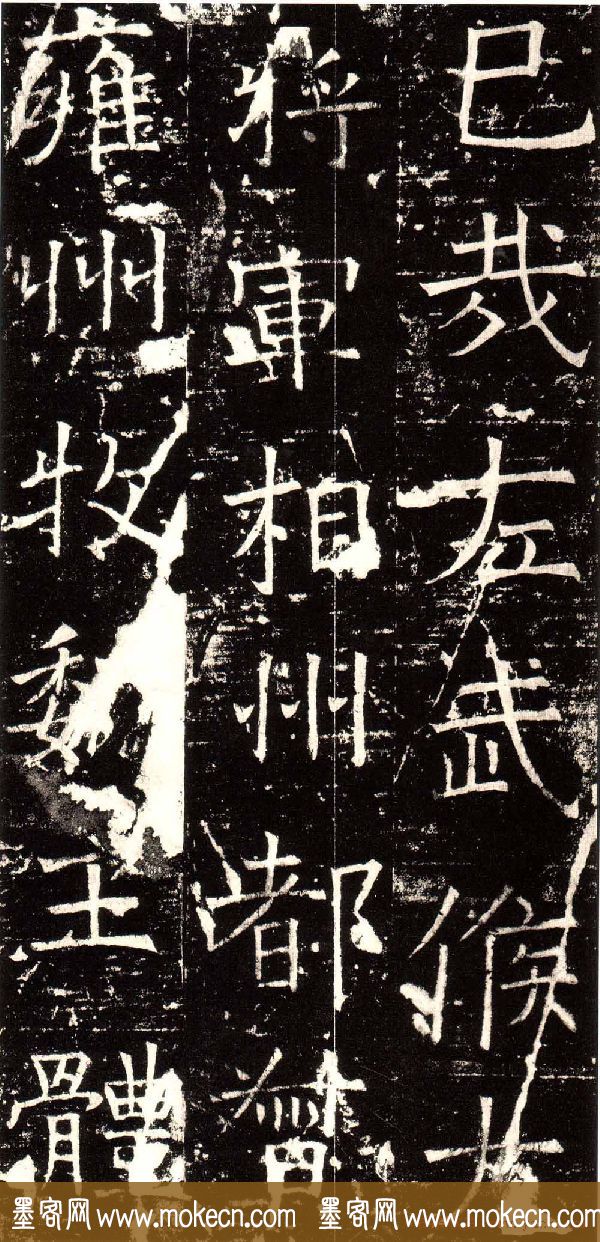 已哉左武候大
將軍相州都督
雍州牧魏王體
墨客网 www.mokecn.com 墨客网 www.mokecn.com